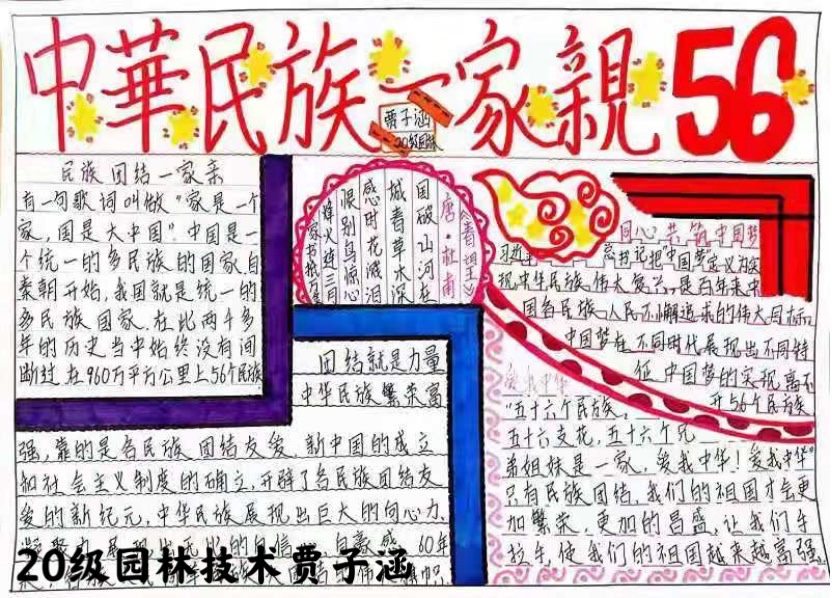 中華民族一家親 56
贾子涵
20级园林
民族团结一家亲
有一句歌词叫做“家是一个
家,国是大中国”.中国是一
个统一的多民族的国家,自
秦朝开始,我国就是统一的
多民族国家.在比两千多
年的历史当中始终没有间
断过.在960万平方公里上56个民族
《春望》
唐·杜甫
国破山河在
城春草木深
感时花溅泪
恨别鸟惊心
烽火连三月
家书抵万金
团结就是力量
中华民族繁荣富
强,靠的是各民族团结友爱,新中国的成立
和社会主义制度的确立,开辟了各民族团结友
爱的新纪元,中华民族展现出巨大的向心力、
60年
同心共筑中国梦
习近平总书记把“中国梦”定义为实
现中华民族伟大复兴,是百年来中
国各民族人民不懈追求的伟大目标.
中国梦在不同时代展现出不同特
征,中国梦的实现离不
开56个民族
爱我中华
“五十六个民族,
五十六支花,五十六个兄
弟姐妹是一家,爱我中华!爱我中华”
只有民族团结,我们的祖国才会更
加繁荣,更加的昌盛,让我们手
拉手,使我们的祖国越来越富强.
20级园林技术贾子涵